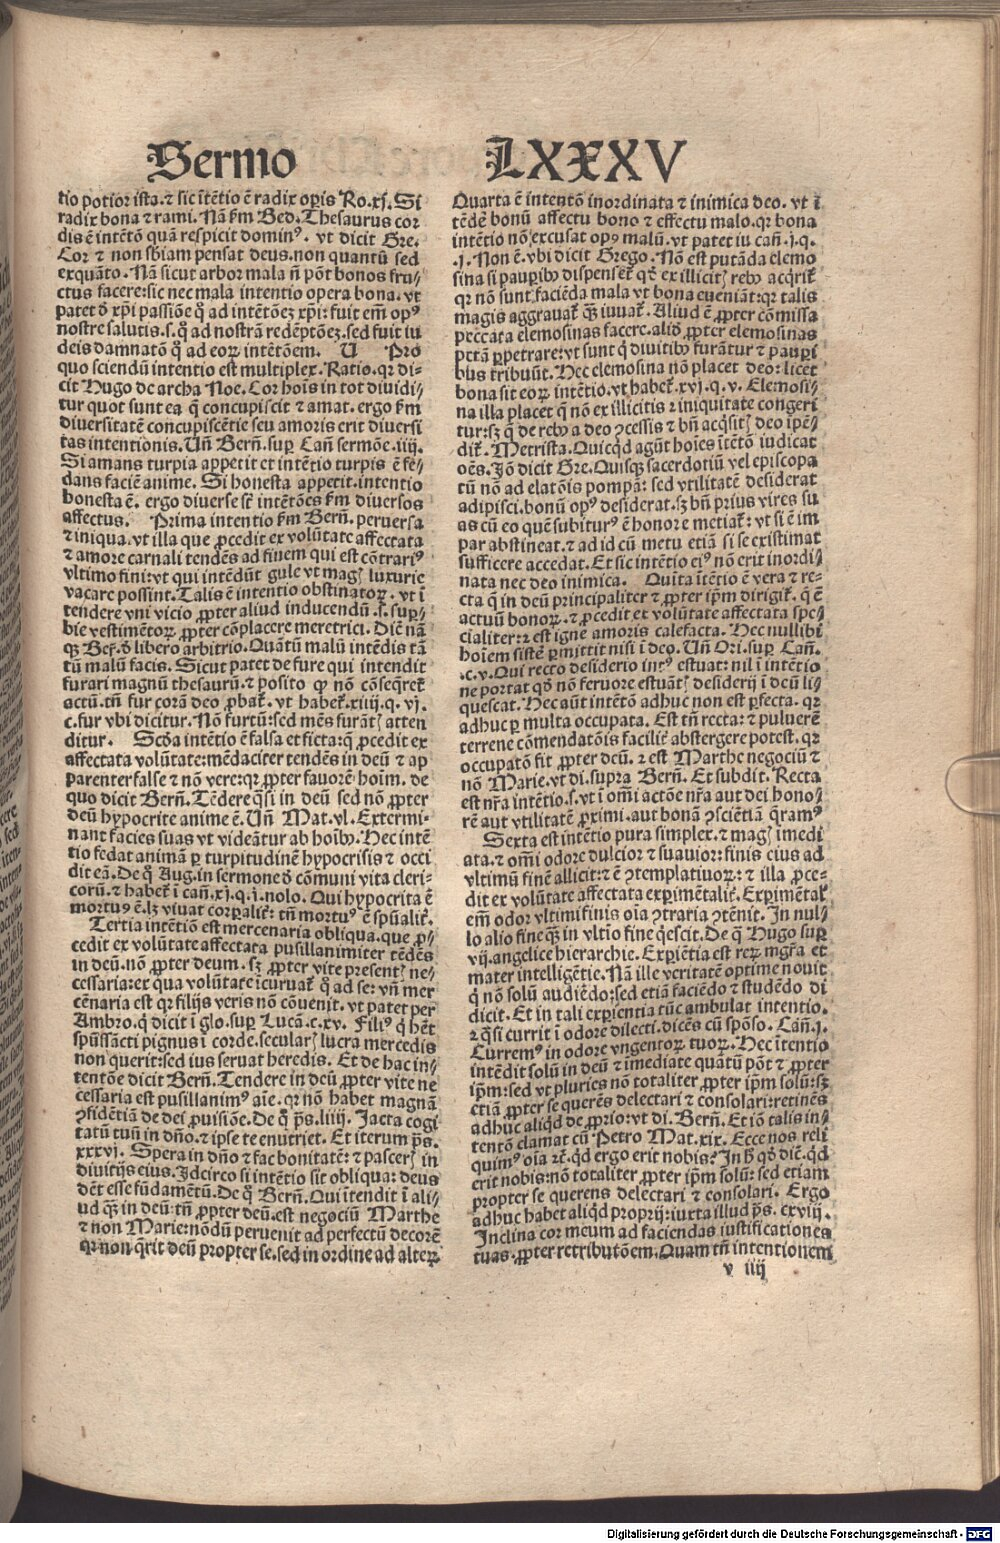 Sermo LXXXV
tio potior ista.⁊ sic ĩtẽtio ẽ radix oꝑis Ro.xj. Si
radix bona ⁊ rami. Nã ẜm Bed. Thesaurus cor
dis ẽ intẽtõ quã respicit dominꝰ. vt dicit Gre.
Cor ⁊ non sbiam pensat deus.non quantũ sed
exquãto. Nã sicut arbor mala ñ põt bonos fru⸗
ctus facere:sic nec mala intentio opera bona. vt
patet ð xp̃i passiõe q̃ ad intẽtõez xp̃i: fuit em̃ opꝰ
nostre salutis.s.q̃ ad nostrã redẽptõez.sed fuit iu
deis damnatõ q̃ ad eoꝝ intẽtõem. V Pro
quo sciendũ intentio est multiplex. Ratio. qꝛ di⸗
cit Hugo de archa Noe. Cor hoĩs in tot diuidi⸗
tur quot sunt ea q̃ concupiscit ⁊ amat. ergo ẜm
diuersitatẽ concupiscẽtie seu amoris erit diuersi
tas intentionis. Uñ Berñ. suꝑ Cañ sermõe.iiij.
Si amans turpia appetit et intẽtio turpis ẽ fe⸗
dans faciẽ anime. Si honesta appetit. intentio
honesta ẽ. ergo diuerse sũt intẽtões ẜm diuersos
affectus. Prima intentio ẜm Berñ. peruersa
⁊ iniqua. vt illa que ꝓcedit ex volũtate affectata
⁊ amore carnali tendẽs ad finem qui est cõtrariꝰ
vltimo fini:vt qui intẽdũt gule vt magꝭ luxurie
vacare possint. Talis ẽ intentio obstinatoꝝ. vt ĩ
tendere vni vicio ꝓpter aliud inducendũ .s. suꝑ⸗
bie vestimẽtoꝝ ꝓpter cõplacere meretrici. Diẽ nã
qꝫ Beř.ð libero arbitrio. Quãtũ malũ intẽdis tã
tũ malũ facis. Sicut patet de fure qui intendit
furari magnũ thesaurũ.⁊ posito ꝙ nõ cõseq̃ret᷑
actũ.tñ fur corã deo ꝓbat᷑. vt habet᷑.xiiij.q.vj.
c.fur vbi dicitur. Nõ furtũ:sed mẽs furãtꝭ atten
ditur. Scða intẽtio ẽ falsa et ficta:q̃ ꝓcedit ex
affectata volũtate:mẽdaciter tendẽs in deũ ⁊ ap
parenter false ⁊ nõ vere:qꝛ ꝓpter fauorẽ hoĩm. de
quo dicit Berñ. Tẽdere q̃si in deũ sed nõ ꝓpter
deũ hypocrite anime ẽ. Uñ Mat.vI. Extermi⸗
nant facies suas vt videãtur ab hoĩbꝰ. Hec intẽ
tio fedat animã ꝑ turpitudinẽ hypocrisis ⁊ occi
dit eã. De q̃ Aug. in sermone ð cõmuni vita cleri⸗
corũ.⁊ habet᷑ ĩ cañ.xj.q.j.nolo. Qui hypocrita ẽ
mortuꝰ ẽ.lꝫ viuat corꝑalit᷑: tñ mortuꝰ ẽ spũalit᷑.
Tertia intẽtio est mercenaria obliqua.que ꝓ⸗
cedit ex volũtate affectata pusillanimiter tẽdẽs
in deũ.nõ ꝓpter deum. sꝫ ꝓpter vite presentꝭ ne⸗
cessaria:ex qua volũtate ĩcuruat᷑ q̃ ad se: vñ mer
cẽnaria est qꝛ filijs veris nõ cõuenit. vt patet per
Ambro.q̃ dicit ĩ glo.suꝑ Lucã.c.xv. Filiꝰ q̃ hẽt
spũssãcti pignus ĩ corde.secularꝭ lucra mercedis
non querit:sed ius seruat heredis. Et de hac in⸗
tentõe dicit Berñ. Tendere in deũ ꝓpter vite ne
cessaria est pusillanimꝰ aĩe. qꝛ nõ habet magnã
ꝯfidẽtiã de dei ꝓuisiõe. De q̃ p̃s.liiij. Jacta cogi
tatũ tuũ in dño.⁊ ipse te enutriet. Et iterum p̃s.
xxxvj. Spera in dño ⁊ fac bonitatẽ: ⁊ pascerꝭ in
diuitijs eius. Idcirco si intẽtio sit obliqua: deus
dẽt esse fũdamẽtũ. De q̃ Berñ. Qui ĩtendit ĩ ali⸗
ud qꝫ in deũ: tñ ꝓpter deũ.est negociũ Marthe
⁊ non Marie:nõdũ peruenit ad perfectũ decorẽ
qꝛ non q̃rit deũ propter se.sed in ordine ad alteꝝ
Quarta ẽ intentõ inordinata ⁊ inimica deo. vt ĩ
tẽdẽ bonũ affectu bono ⁊ effectu malo. qꝛ bona
intẽtio nõ excusat opꝰ malũ. vt patet in cañ.j.q.
.j. Non ẽ. vbi dicit Grego. Nõ est putãda elemo
sina si pauꝑibꝰ dispenset᷑ qð ex illicitꝭ rebꝰ acq̃rit᷑
qꝛ nõ sunt faciẽda mala vt bona eueniãt: qꝛ talis
magis aggrauat᷑ qꝫ iuuat᷑. Aliud ẽ ꝓpter cõmissa
peccata elemosinas facere. alið ꝓpter elemosinas
pctã ꝑpetrare:vt sunt q̃ diuitibꝰ furãtur ⁊ pauꝑi
bus tribuũt. Hec elemosina nõ placet deo: licet
bona sit eoꝝ intẽtio.vt habet᷑.xvj.q.v. Elemosi⸗
na illa placet q̃ nõ ex illicitis ⁊ iniquitate congeri
tur:sꝫ q̃ de rebꝰ a deo ꝯcessis ⁊ bñ acq̃sitꝭ deo ĩpẽ⸗
dit᷑. Metrista. Quicq̃d agũt hoĩes ĩtẽtõ iudicat
oẽs. Iõ dicit Gre. Quisqꝫ sacerdotiũ vel episcopa
tũ nõ ad elatõis pompã: sed vtilitatẽ desiderat
adipisci.bonũ opꝰ desiderat.sꝫ bñ prius vires su
as cũ eo quẽ subiturꝰ ẽ honore metiat᷑: vt si ẽ im
par abstineat.⁊ ad id cũ metu etiã si se existimat
sufficere accedat. Et sic intẽtio eiꝰ nõ erit inordi⸗
nata nec deo inimica. Quĩta ĩtẽtio ẽ vera ⁊ re⸗
cta q̃ in deũ principaliter ⁊ ꝓpter ip̃m dirigit᷑. q̃ ẽ
actuũ bonoꝝ.⁊ ꝓcedit ex volũtate affectata spe⸗
cialiter:⁊ est igne amoris calefacta. Hec nullibi
hoĩem sistẽ ꝑmittit nisi ĩ deo. Uñ Ori.suꝑ Cañ.
.c.v. Qui recto desiderio intꝰ estuat: nil ĩ intẽtio
ne portat qð nõ feruore estuãtꝭ desiderij ĩ deũ li⸗
quescat. Hec aũt intẽtõ adhuc non est ꝑfecta. qꝛ
adhuc ꝑ multa occupata. Est tñ recta: ⁊ puluerẽ
terrene cõmendatõis facilit᷑ abstergere potest. qꝛ
occupatõ fit ꝓpter deũ. ⁊ est Marthe negociũ ⁊
nõ Marie. vt di. supra Berñ. Et subdit. Recta
est nr̃a intẽtio.s.vt ĩ om̃i actõe nr̃a aut dei hono⸗
rẽ aut vtilitatẽ ꝓximi.aut bonã ꝯsciẽtiã q̃ramꝰ
Sexta est intẽtio pura simplex.⁊ magꝭ imedi
ata.⁊ om̃i odore dulcior ⁊ suauior:finis eius ad
vltimũ finẽ allicit:⁊ ẽ ꝯtemplatiuoꝝ: ⁊ illa ꝓce⸗
dit ex volũtate affectata exꝑimẽtalit᷑. Exꝑimẽtal᷑
em̃ odor vltimi finis oĩa ꝯtraria ꝯtẽnit. In nul⸗
lo alio fine qꝫ in vltĩo fine q̃escit. De q̃ Hugo suꝑ
vij.angelice hierarchie. Exꝑiẽtia est reꝝ mg̃ra et
mater intelligẽtie. Nã ille veritatẽ optime nouit
q̃ nõ solũ audiẽdo:sed etiã faciẽdo ⁊ studẽdo di
dicit. Et in tali exꝑientia tũc ambulat intentio.
⁊ q̃si currit ĩ odore dilecti.dicẽs cũ spõso. Cañ.j.
Curremꝰ in odore vngentoꝝ tuoꝝ. Hec ĩtentio
intẽdit solũ in deũ ⁊ imediate quãtũ põt ⁊ ꝓpter
ip̃m:sed vt plurics nõ totaliter ꝓpter ip̃m solũ:sꝫ
etiã ꝓpter se querẽs delectari ⁊ consolari:retinẽs
adhuc aliq̃d de ꝓprio:vt di. Berñ. Et iõ talis in⸗
tentõ clamat cũ Petro Mat.xix. Ecce nos reli
quimꝰ oĩa ⁊c̃.q̃d ergo erit nobis? In h̃ qð diẽ.q̃d
erit nobis:nõ totaliter ꝓpter ip̃m solũ: sed etiam
propter se querens delectari ⁊ consolari. Ergo
adhuc habet aliq̃d proprij:iuxta illud p̃s. cxviij.
Inclina cor meum ad faciendas iustificationes
tuas.ꝓpter retributõem. Quam tñ intentionem
v iiij
Digitalisierung gefördert durch die Deutsche Forschungsgemeinschaft - DFG